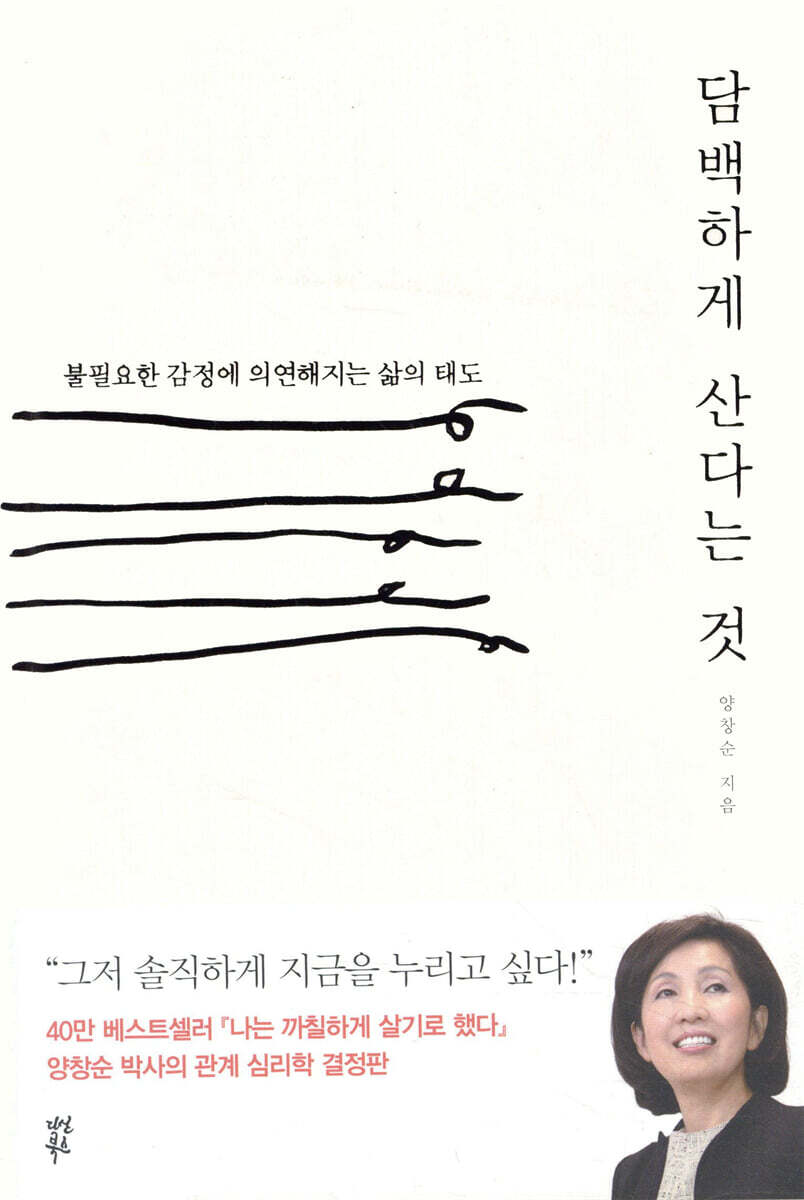 담백하게 산다는 것
양창순 지음
불필요한 감정에 의연해지는 삶의 태도
“그저 솔직하게 지금을 누리고 싶다!”
40만 베스트셀러 『나는 까칠하게 살기로 했다』
양창순 박사의 관계 심리학 결정판
다산
북스